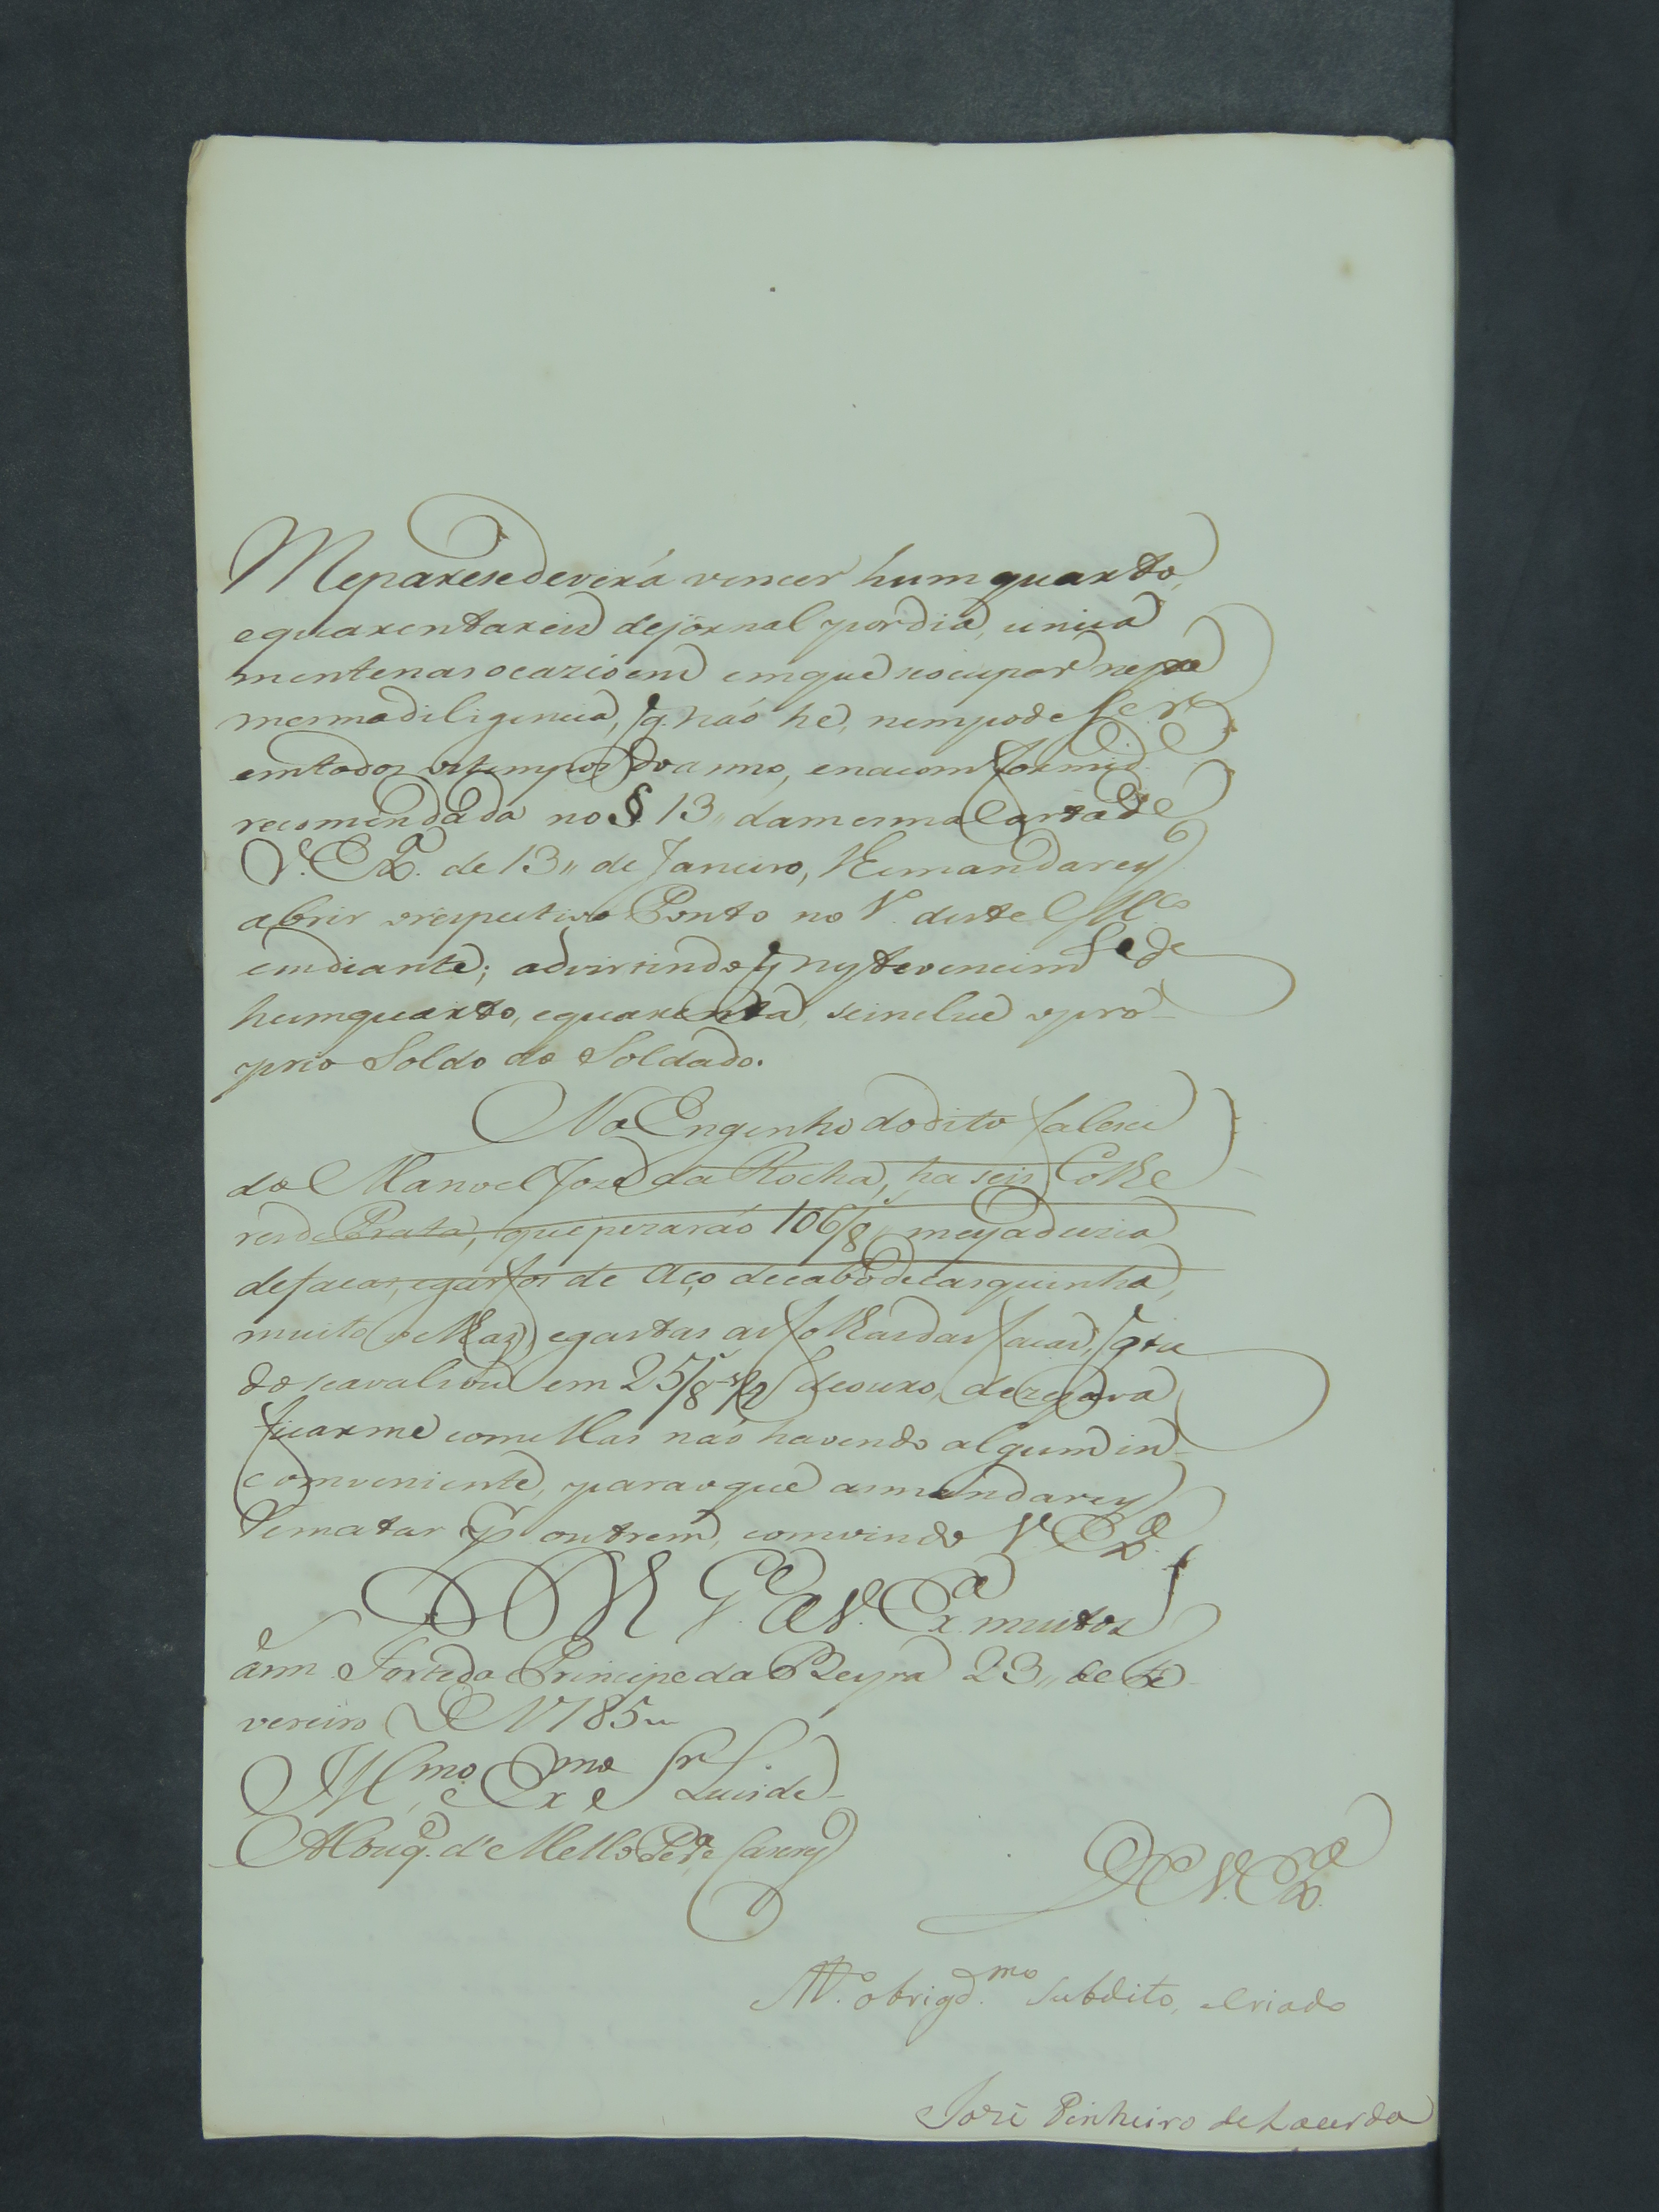 Meparesedeverá vencer hum quarto,
equarentareis dejornal por dia, unica
mente nas ocazioens emque se ocupar nessa
mesma diligencia, q. não he, nem pode ser
em todos os tempos do anno, e na comformid.e
recomendada no §. 13,, da mesma Carta de
V. Ex.a de 13,, de Janeiro, lhe mandarey
abrir o respectivo Ponto no 1.o deste M.co
em diante; advirtindo q neste vencim.to de
hum quarto, e quarenta, se inclue o pro-
prio Soldo do Soldado.
No Engenho do dito faleci
do Manoel José da Rocha, ha seis Colhe
res de Prata, que pezarão 106/8,, meya duzia
de facas, e garfos de Aço de cabo de casquinha,
muito velhas, e gastas as folhas das facas, q tu
do se avaliou em 25/8 1/2 de ouro, dezejava
ficarme com ellas não havendo algum in-
comveniente, para o que as mandarey
Rematar p.r outrem, comvindo V. Ex.a
D.s G.e a V. Ex.a muitos
ann.s Forte do Principe da Beyra 23,, de Fe-
vereiro de 1785,,
Ill.mo e Ex.mo Sr. Luis de
Albuq.e d'Mello Per.a Caseres
De V. Ex.a
M.to obrigd.mo Subdito, e Criado
José Pinheiro de Lacerda